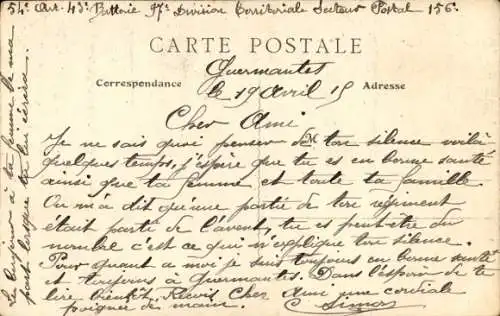 54e Art. 43e Batterie 97e Division Territoriale Secteur Postal 156
CARTE POSTALE
Correspondance
Adresse
Guermantes
le 19 Avril 15
Cher Ami
Je ne sais quoi penser de ton silence voilà
quelques temps, j'espère que tu es en bonne santé
ainsi que ta femme et toute ta famille.
On m'a dit qu'une partie de ton régiment
était partie de l'avent, tu es peut-être du
nombre c'est ce qui m'explique ton silence.
Pour quant a moi je suis toujours en bonne santé
et toujours à Guermantes. Dans l'espoir de te
lire bientôt. Reçois Cher Ami une cordiale
poignée de main. Simon
Le bonjour à ta femme de ma
part lorsque tu lui écriras